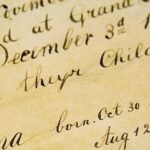 d at Grand
December 3d 1
theyr Child
na born. Oct 30
Aug 12